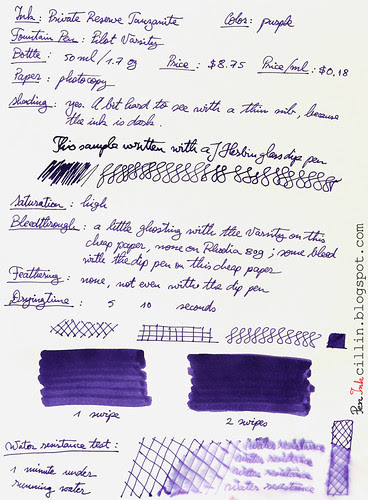 Ink: Private Reserve Tanzanite Color: purple
Fountain Pen: Pilot Varsity
Bottle: 50 ml / 1.7 oz Price: $8.75 Price/ml: $0.18
Paper: photocopy
Shading: yes. A bit hard to see with a thin nib, because
the ink is dark.
This sample written with a J Herbin glass dip pen
Saturation: high
Bleedthrough: a little ghosting with the Varsity on this
cheap paper, none on Rhodia 80g; some bleed
with the dip pen on this cheap paper
Feathering: none, not even with the dip pen
Drying time: 5 10 seconds
1 swipe 2 swipes
Water resistance test:
1 minute under
running water
water resistance
water resistance
water resistance
water resistance
PenInkcillin.blogspot.com